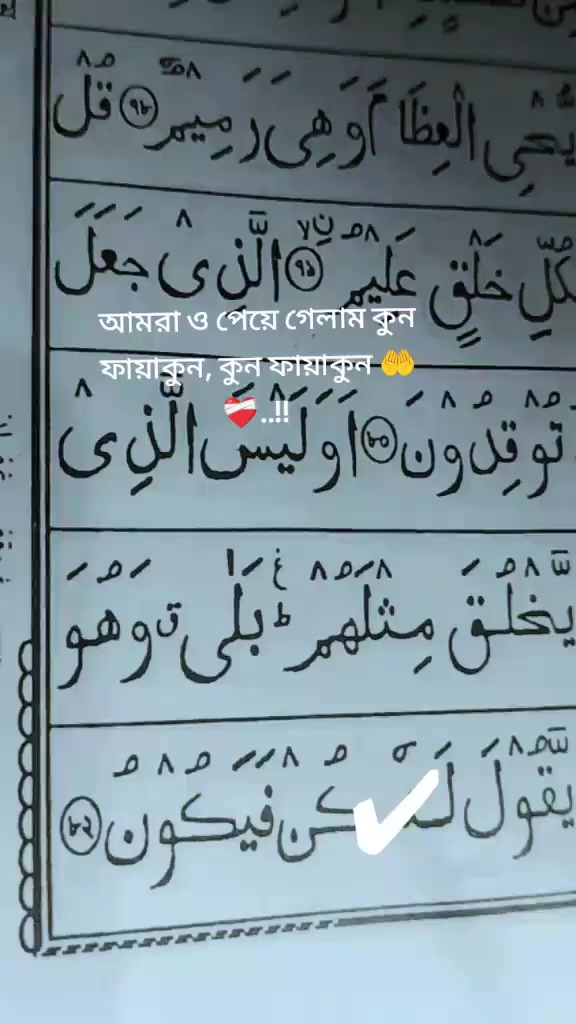 يُّحْيِ الْعِظَامَ وَهِيَ رَمِيْمٌ ﴿۷۸﴾ قُلْ
خَلْقٍ عَلِيْمُ ﴿۷۹﴾ ۙنِ الَّذِيْ جَعَلَ
আমরা ও পেয়ে গেলাম কুন
ফায়াকুন, কুন ফায়াকুন 🤲
❤️‍🩹..!!
تُوْقِدُوْنَ ﴿۸۰﴾ اَوَلَيْسَ الَّذِيْ
يَّخْلُقَ مِثْلَهُمْ ؕ بَلٰى ۗ وَهُوَ
يَّقُوْلَ لَهٗ كُنْ فَيَكُوْنُ ﴿۸۲﴾